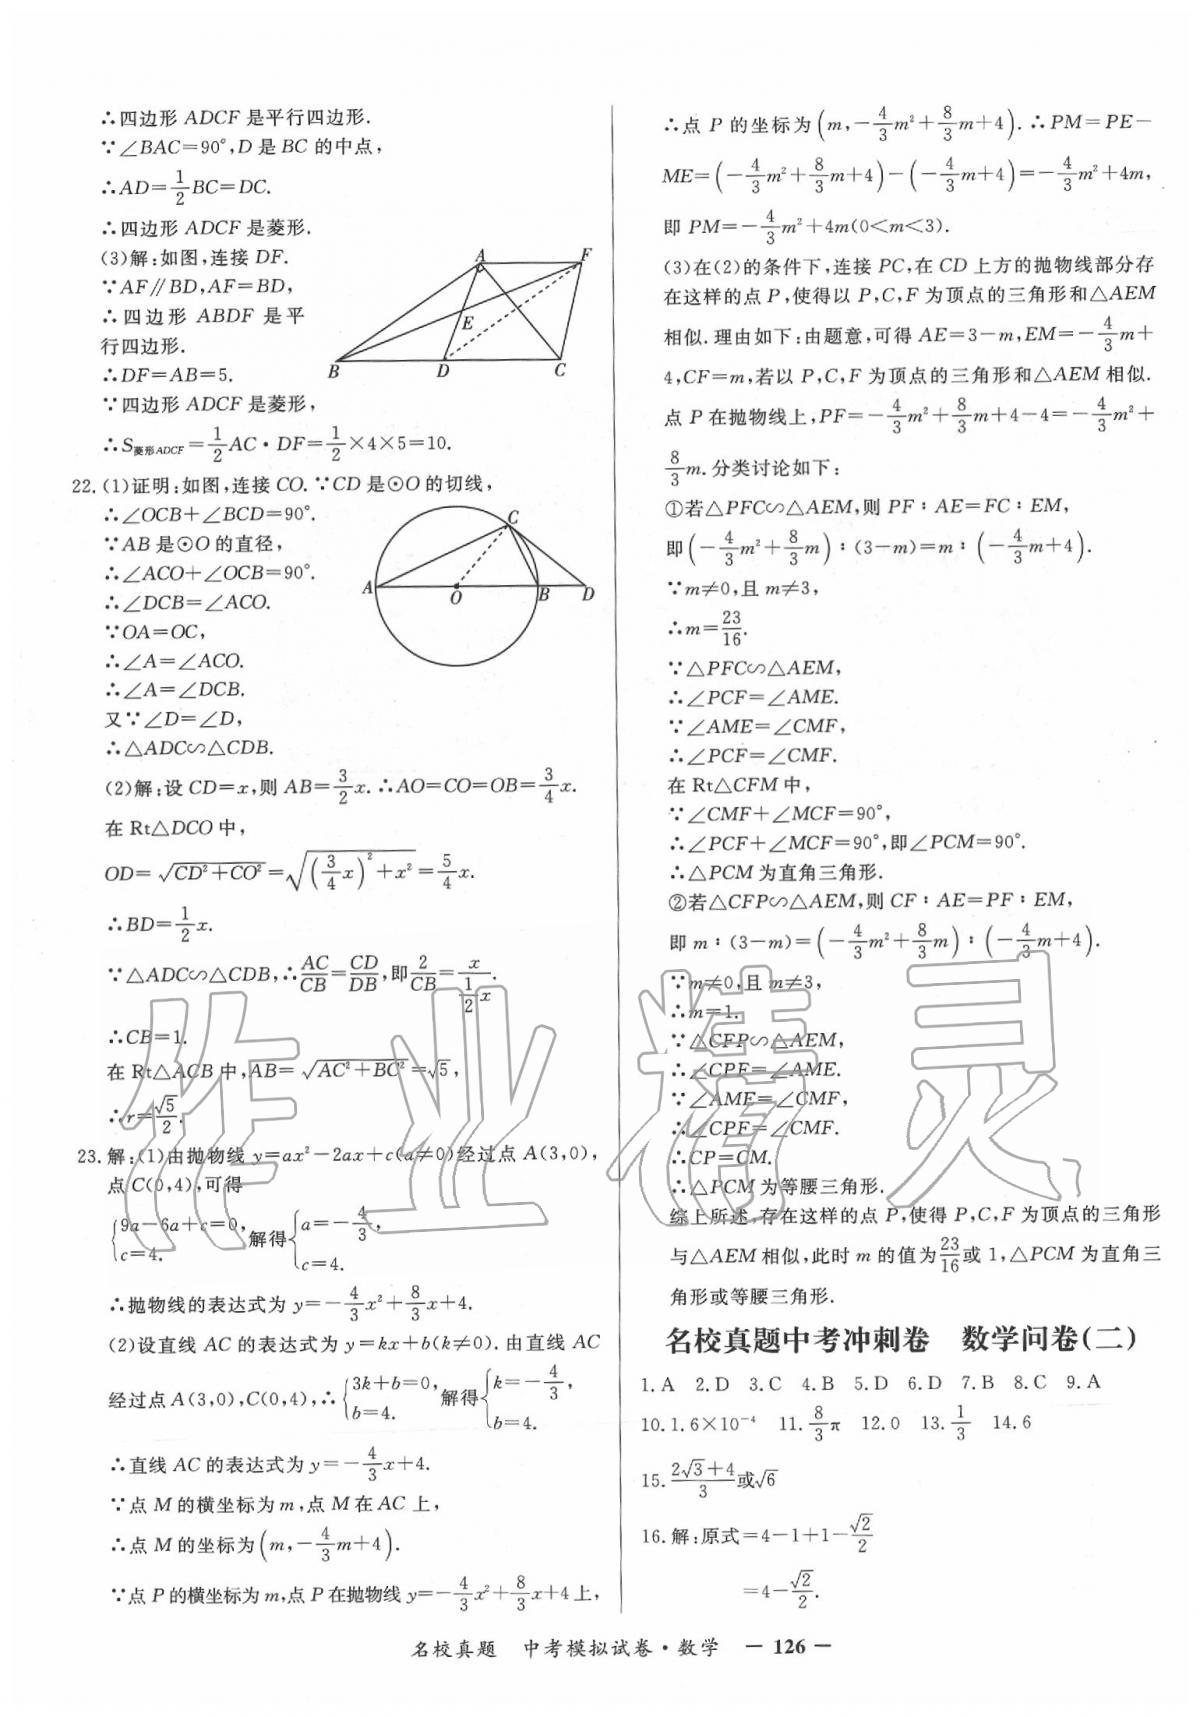 ∴四边形 ADCF 是平行四边形.
∵∠BAC=90°,D 是 BC 的中点,
∴AD=1/2BC=DC.
∴四边形 ADCF 是菱形.
(3)解:如图,连接 DF.
∵AF∥BD,AF=BD,
∴四边形 ABDF 是平
行四边形.
∴DF=AB=5.
∵四边形 ADCF 是菱形,
∴S菱形ADCF=1/2AC·DF=1/2×4×5=10.
A F E B D C
22.(1)证明:如图,连接 CO.∵CD 是⊙O 的切线,
∴∠OCB+∠BCD=90°.
∵AB 是⊙O 的直径,
∴∠ACO+∠OCB=90°.
∴∠DCB=∠ACO.
∵OA=OC,
∴∠A=∠ACO.
∴∠A=∠DCB.
又∵∠D=∠D,
∴△ADC∽△CDB.
C A O B D
(2)解:设 CD=x,则 AB=3/2x.∴AO=CO=OB=3/4x.
在 Rt△DCO 中,
OD=√(CD²+CO²)=√((3/4x)²+x²)=5/4x.
∴BD=1/2x.
∵△ADC∽△CDB,∴AC/CB=CD/DB,即2/CB=x/(1/2x).
∴CB=1.
在 Rt△ACB 中,AB=√(AC²+BC²)=√5,
∴r=√5/2.
23.解:(1)由抛物线 y=ax²-2ax+c(a≠0)经过点 A(3,0),
点 C(0,4),可得
{9a-6a+c=0, c=4. 解得{a=-4/3, c=4.
∴抛物线的表达式为 y=-4/3x²+8/3x+4.
(2)设直线 AC 的表达式为 y=kx+b(k≠0).由直线 AC
经过点 A(3,0),C(0,4),∴{3k+b=0, b=4. 解得{k=-4/3, b=4.
∴直线 AC 的表达式为 y=-4/3x+4.
∵点 M 的横坐标为 m,点 M 在 AC 上,
∴点 M 的坐标为(m,-4/3m+4).
∵点 P 的横坐标为 m,点 P 在抛物线 y=-4/3x²+8/3x+4 上,
∴点 P 的坐标为(m,-4/3m²+8/3m+4).∴PM=PE-
ME=(-4/3m²+8/3m+4)-(-4/3m+4)=-4/3m²+4m,
即 PM=-4/3m²+4m(0<m<3).
(3)在(2)的条件下,连接 PC,在 CD 上方的抛物线部分存
在这样的点 P,使得以 P,C,F 为顶点的三角形和△AEM
相似.理由如下:由题意,可得 AE=3-m,EM=-4/3m+
4,CF=m,若以 P,C,F 为顶点的三角形和△AEM 相似.
点 P 在抛物线上,PF=-4/3m²+8/3m+4-4=-4/3m²+
8/3m.分类讨论如下:
①若△PFC∽△AEM,则 PF∶AE=FC∶EM,
即(-4/3m²+8/3m)∶(3-m)=m∶(-4/3m+4).
∵m≠0,且 m≠3,
∴m=23/16.
∵△PFC∽△AEM,
∴∠PCF=∠AME.
∵∠AME=∠CMF,
∴∠PCF=∠CMF.
在 Rt△CFM 中,
∵∠CMF+∠MCF=90°,
∴∠PCF+∠MCF=90°,即∠PCM=90°.
∴△PCM 为直角三角形.
②若△CFP∽△AEM,则 CF∶AE=PF∶EM,
即 m∶(3-m)=(-4/3m²+8/3m)∶(-4/3m+4).
∵m≠0,且 m≠3,
∴m=1.
∵△CFP∽△AEM,
∴∠CPF=∠AME.
∵∠AME=∠CMF,
∴∠CPF=∠CMF.
∴CP=CM.
∴△PCM 为等腰三角形.
综上所述,存在这样的点 P,使得 P,C,F 为顶点的三角形
与△AEM 相似,此时 m 的值为23/16或 1,△PCM 为直角三
角形或等腰三角形.
名校真题中考冲刺卷 数学问卷(二)
1.A 2.D 3.C 4.B 5.D 6.D 7.B 8.C 9.A
10.1.6×10⁻⁴ 11.8/3π 12.0 13.1/3 14.6
15.(2√3+4)/3或√6
16.解:原式=4-1+1-√2/2
=4-√2/2.
作业精灵
名校真题 中考模拟试卷·数学 — 126 —